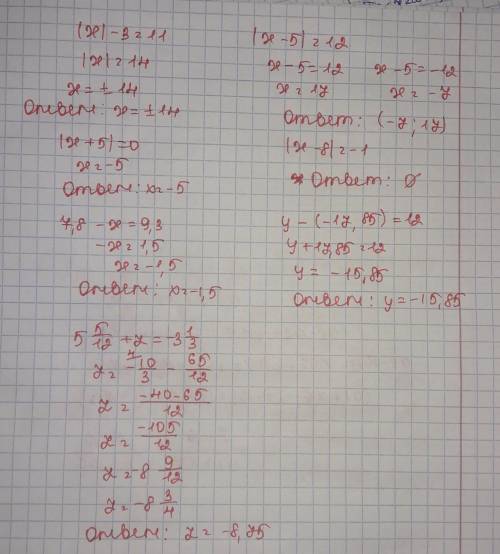 |x| - 3 = 11
|x| = 14
x = ± 14
Ответ: x = ± 14
|x + 5| = 0
x = -5
Ответ: x = -5
7,8 - x = 9,3
-x = 1,5
x = -1,5
Ответ: x = -1,5
|x - 5| = 12
x - 5 = 12 x - 5 = -12
x = 17 x = -7
Ответ: (-7; 17)
|x - 8| = -1
Ответ: ∅
y - (-17,85) = 12
y + 17,85 = 12
y = -15,85
Ответ: y = -15,85
5 5/12 + z = -3 1/3
z = -10/3 - 65/12
z = -40-65/12
z = -105/12
z = -8 9/12
z = -8 3/4
Ответ: z = -8,75